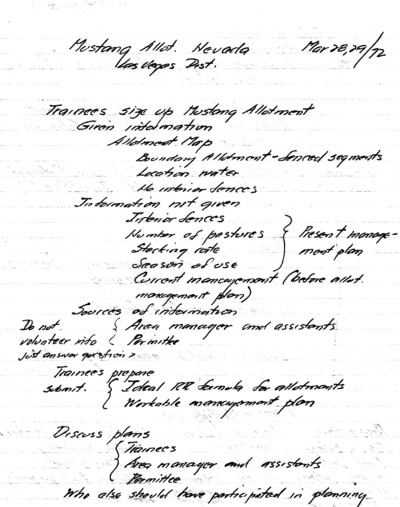 Mustang Allot. Nevada Mar 28,29/72
Las Vegas Dist.
Trainees size up Mustang Allotment
Given information
Allotment Map
Boundary Allotment - fenced segments
Location water
No interior fences
Information not given
Interior fences
Number of pastures } Present manage-
Stocking rate ment plan
Season of use
Current management (before allot.
management plan)
Sources of information
Do not { Area manager and assistants
volunteer info { Permittee
just answer question >
Trainees prepare
submit. { Ideal RR formula for allotments
Workable management plan
Discuss plans
{ Trainees
Area manager and assistants
Permittee
Who else should have participated in planning